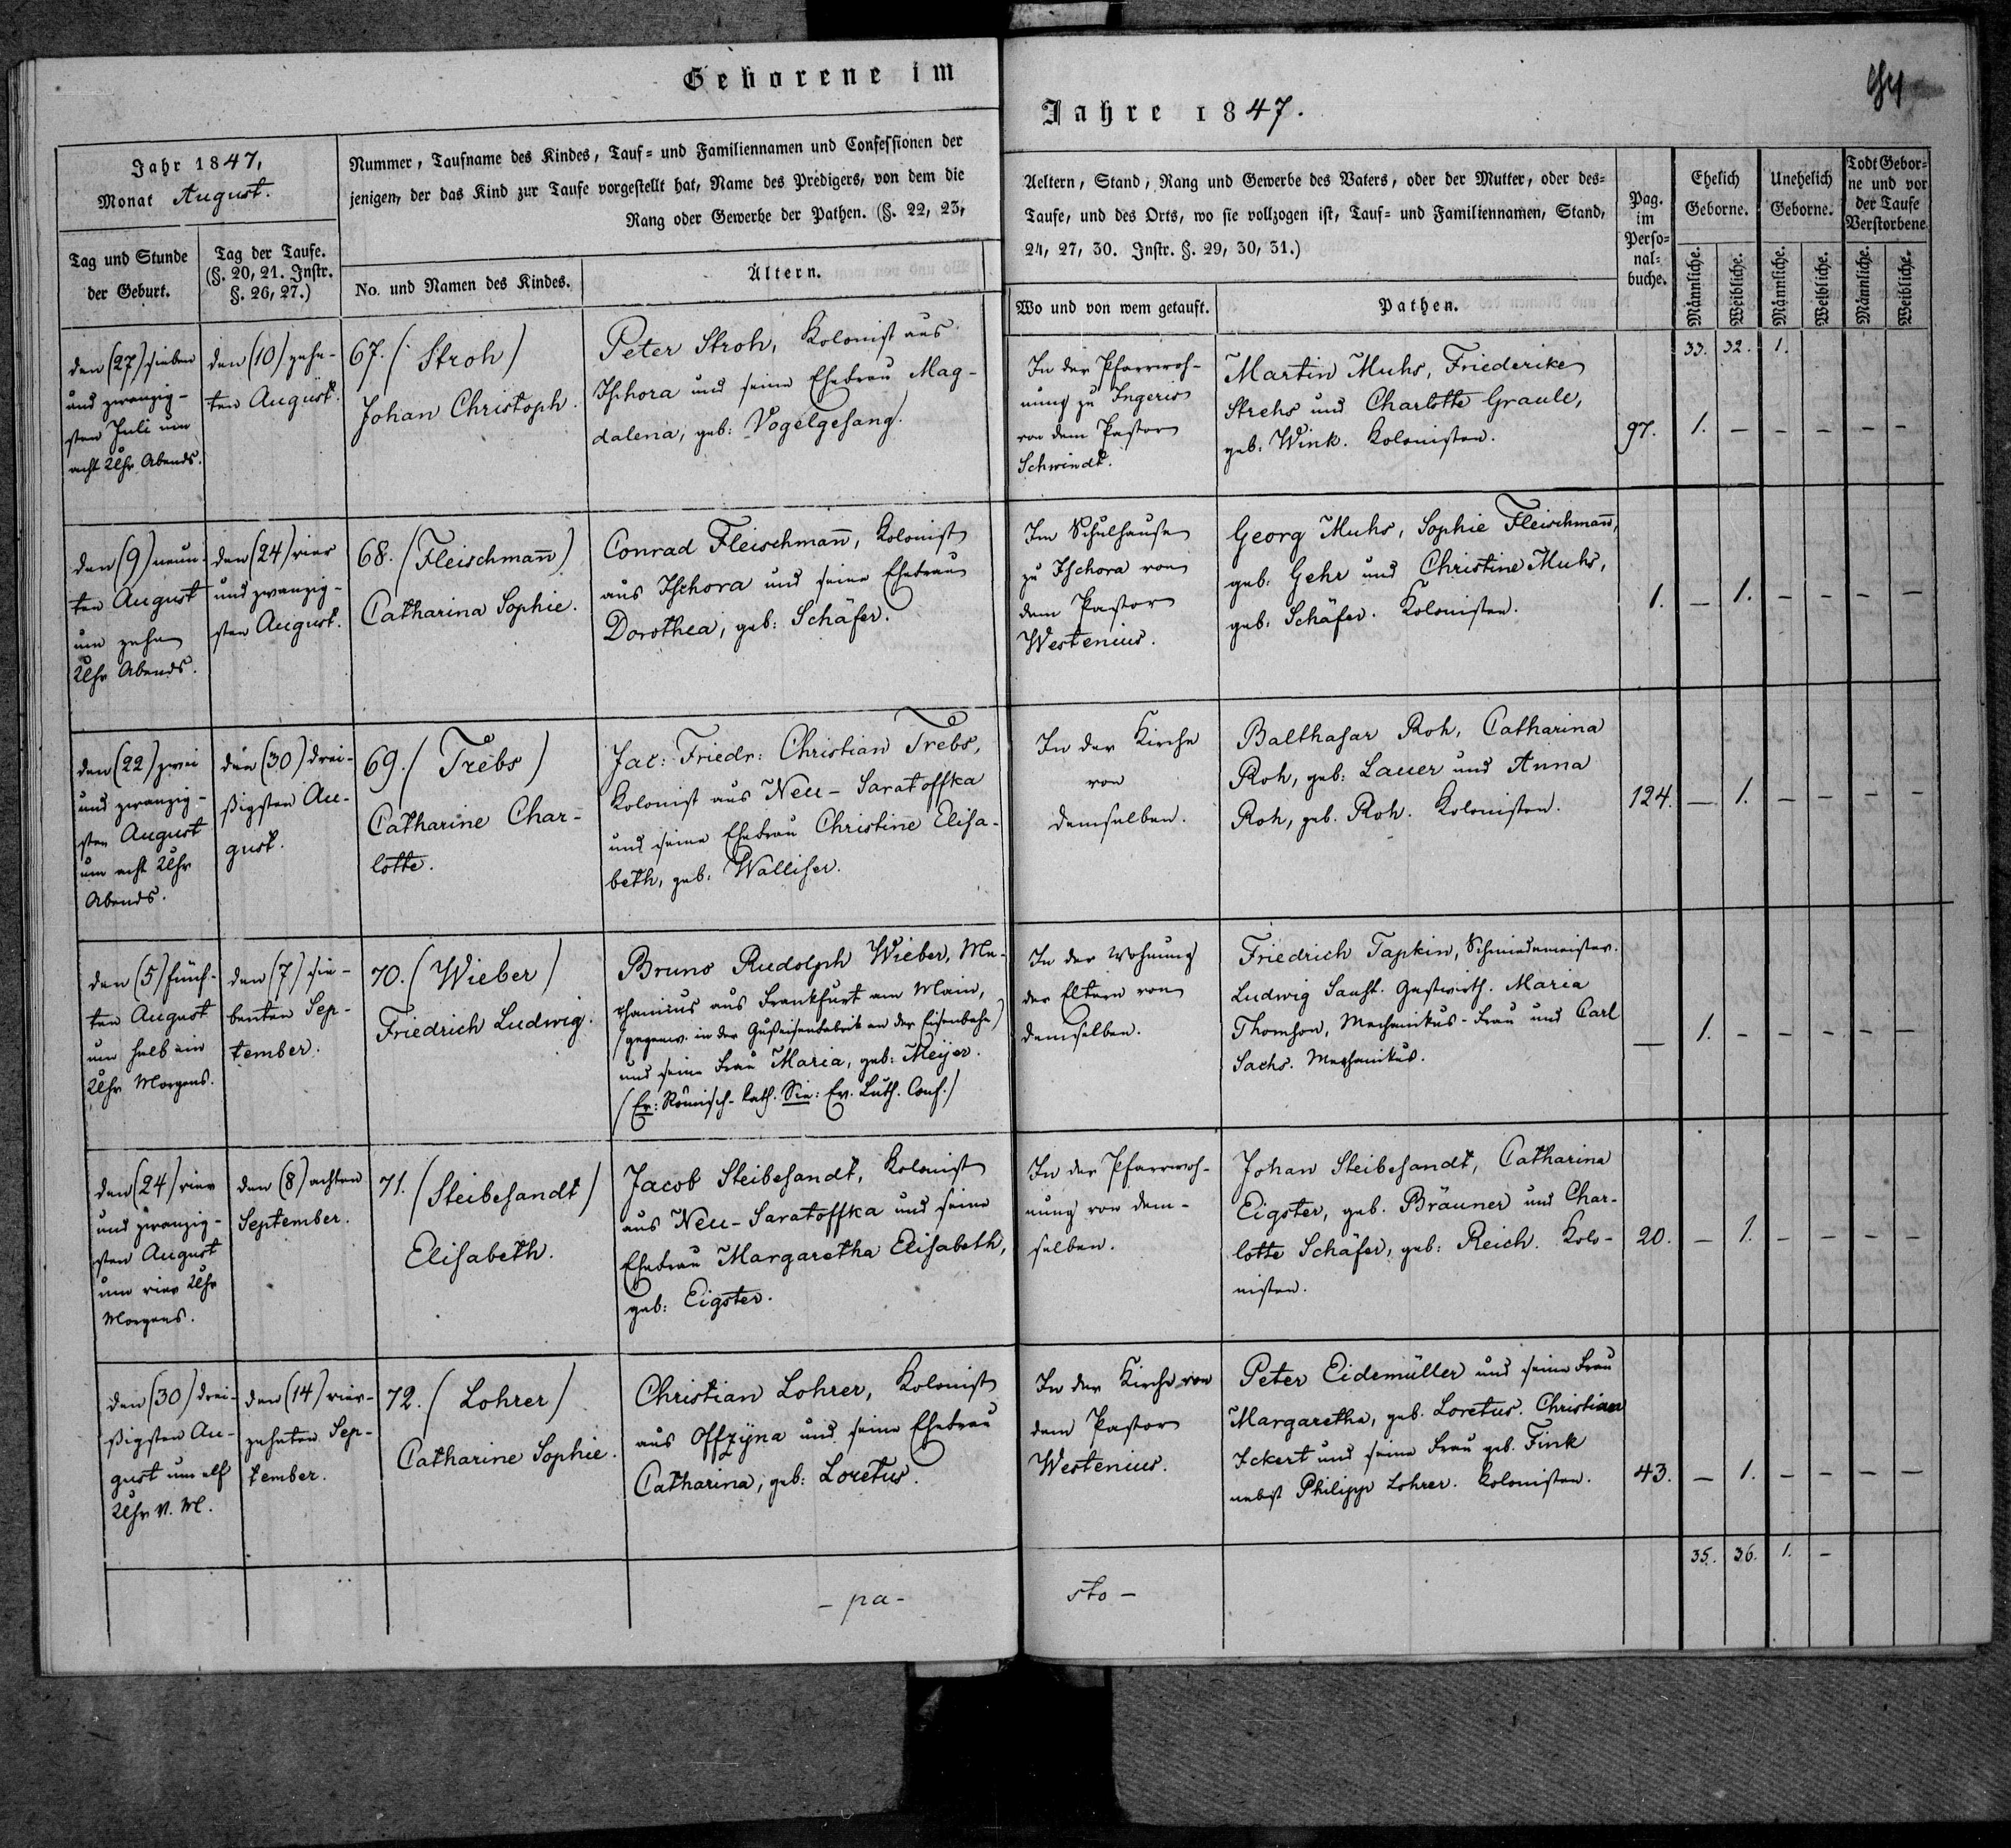 Geborene im
Jahr 1847,
Monat August.
Nummer, Taufname des Kindes, Tauf- und Familiennamen und Confessionen der
jenigen, der das Kind zur Taufe vorgestellt hat, Name des Predigers, von dem die
Rang oder Gewerbe der Pathen. (§. 22, 23,
Tag und Stunde
der Geburt.
Tag der Taufe.
(§. 20, 21. Instr.
§. 26, 27.)
No. und Namen des Kindes.
Ältern.
den (27) sieben
und zwanzig-
sten Juli um
acht Uhr Abends.
den (10) zehn-
ten August.
67. (Stroh)
Johan Christoph.
Peter Stroh, Kolonist aus
Ischora und seine Ehefrau Mag-
dalena, geb: Vogelgesang.
den (9) neun-
ten August
um zehn
Uhr Abends.
den (24) vier
und zwanzig-
sten August.
68. (Fleischmañ)
Catharina Sophie.
Conrad Fleischmañ, Kolonist
aus Ischora und seine Ehefrau
Dorothea, geb: Schäfer.
den (22) zwei
und zwanzig-
sten August
um acht Uhr
Abends.
den (30) drei-
ßigsten Au-
gust.
69. (Trebs)
Catharine Char-
lotte.
Jac: Friedr: Christian Trebs,
Kolonist aus Neu-Saratoffka
und seine Ehefrau Christine Elisa-
beth, geb: Walliser.
den (5) fünf-
ten August
um halb ein
Uhr Morgens.
den (7) sie-
benten Sep-
tember.
70. (Wieber)
Friedrich Ludwig.
Bruno Rudolph Wieber, Me-
chanicus aus Frankfurt am Main,
(gegenw. in der Gußeisenfabrik an der Eisenbahn)
und seine Frau Maria, geb: Meijer.
(Er: Römisch-kath. Sie: Ev. Luth. Conf.)
den (24) vier
und zwanzig-
sten August
um vier Uhr
Morgens.
den (8) achten
September.
71. (Steibesandt)
Elisabeth.
Jacob Steibesandt, Kolonist
aus Neu-Saratoffka und seine
Ehefrau Margaretha Elisabeth,
geb: Eigster.
den (30) drei-
ßigsten Au-
gust um elf
Uhr V. M.
den (14) vier-
zehnten Sep-
tember.
72. (Lohrer)
Catharine Sophie.
Christian Lohrer, Kolonist
aus Offzijna und seine Ehefrau
Catharina, geb: Loretus.
- pa -
Jahre 1847.
Aeltern, Stand, Rang und Gewerbe des Vaters, oder der Mutter, oder des-
Taufe, und des Orts, wo sie vollzogen ist, Tauf- und Familiennamen, Stand,
24, 27, 30. Instr. §. 29, 30, 31.)
Wo und von wem getauft.
Pathen.
Pag.
im
Perso-
nal-
buche.
Ehelich
Geborne.
Unehelich
Geborne.
Todt Gebor-
ne und vor
der Taufe
Verstorbene
Männliche.
Weibliche.
Männliche.
Weibliche.
Männliche.
Weibliche.
33. 32. 1.
In der Pfarrwoh-
nung zu Ingeris
von dem Pastor
Schwindt.
Martin Muhs, Friederike
Strehs und Charlotte Graule,
geb: Wink. Kolonisten.
97. 1. – – – – –
Im Schulhause
zu Ischora von
dem Pastor
Westenius.
Georg Muhs, Sophie Fleischmañ,
geb: Gehr und Christine Muhs,
geb: Schäfer. Kolonisten.
1. – 1. – – – –
In der Kirche
von
demselben.
Balthasar Roh, Catharina
Roh, geb: Lauer und Anna
Roh, geb. Roh. Kolonisten.
124. – 1. – – – –
In der Wohnung
der Eltern von
demselben.
Friedrich Tapkin, Schmiedemeister.
Ludwig Sanft. Gastwirth. Maria
Thomson, Mechanikus-Frau und Carl
Sachs. Mechanikus.
– 1. – – – – –
In der Pfarrwoh-
nung von dem-
selben.
Johan Steibesandt, Catharina
Eigster, geb. Bräuner und Char-
lotte Schäfer, geb: Reich. Kolo-
nisten.
20. – 1. – – – –
In der Kirche von
dem Pastor
Westenius.
Peter Eidemüller und seine Frau
Margaretha, geb. Loretus. Christian
Ickert und seine Frau geb. Fink
nebst Philipp Lohrer. Kolonisten.
43. – 1. – – – –
35. 36. 1. –
sto -